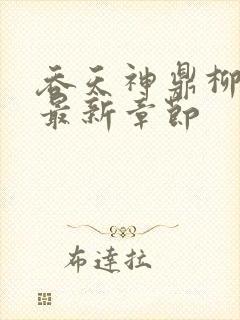 吞天神鼎柳
最新章节
布達拉